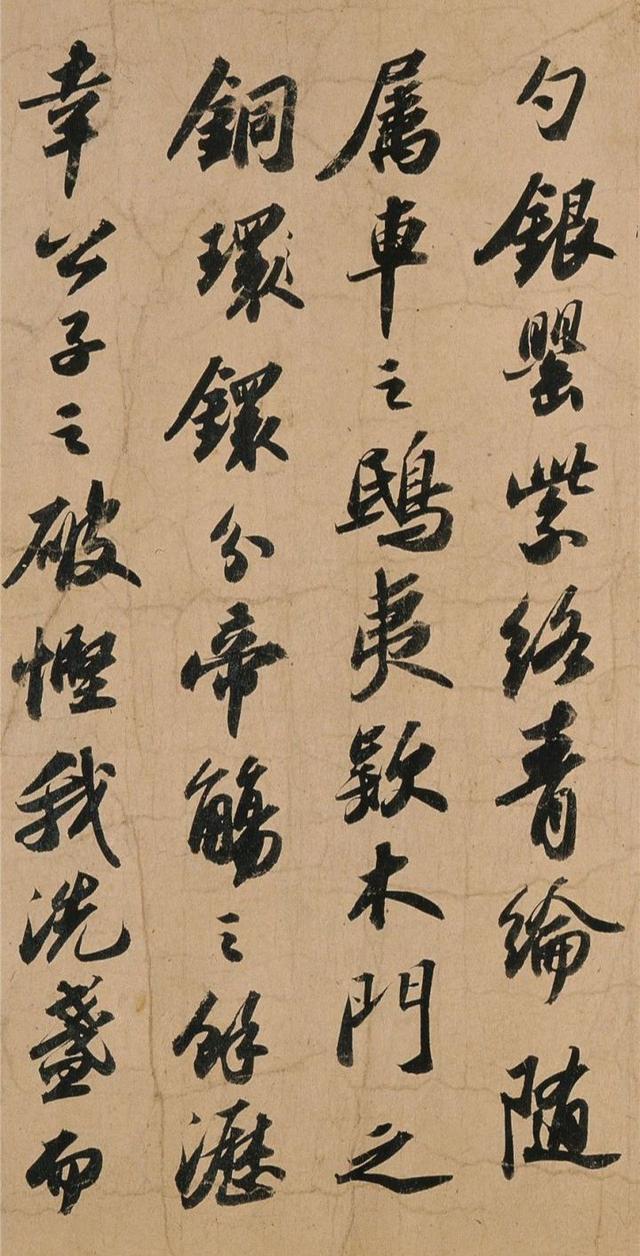 勺銀罌紫絡青綸隨
屬車之鴟夷款木門之
銅環鐶分帝觴之餘瀝
幸公子之破慳我洗盞而